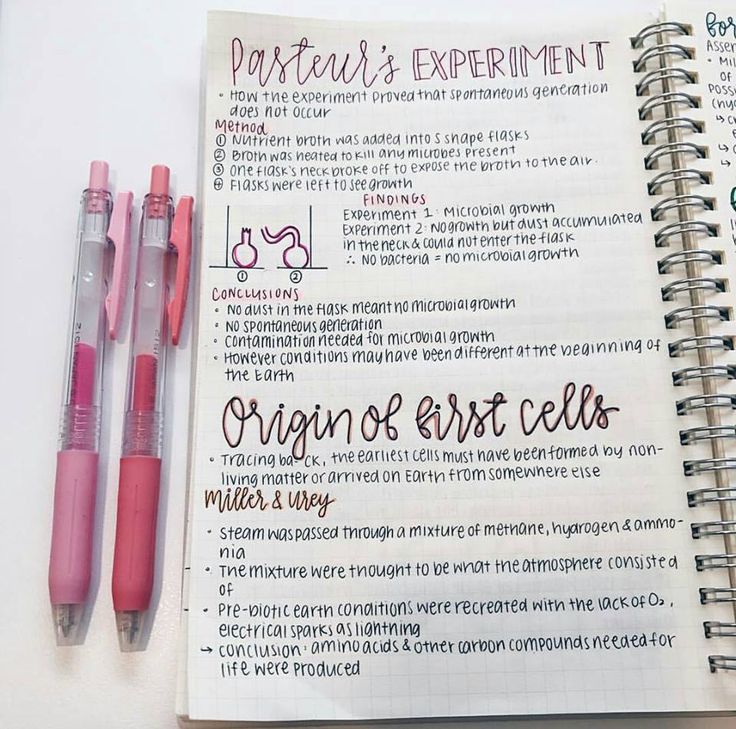 Pasteur's EXPERIMENT
• How the experiment proved that spontaneous generation
does not occur
Method
① Nutrient broth was added into S shape flasks
② Broth was heated to kill any microbes present
③ One flask's neck broke off to expose the broth to the air.
④ Flasks were left to see growth
FINDINGS
Experiment 1: Microbial growth
Experiment 2: No growth but dust accumulated
in the neck & could not enter the flask
∴ No bacteria = no microbial growth
① ②
CONCLUSIONS
• No dust in the flask meant no microbial growth
• No spontaneous generation
• Contamination needed for microbial growth
• However conditions may have been different at the beginning of
the Earth
Origin of first cells
• Tracing back, the earliest cells must have been formed by non-
living matter or arrived on Earth from somewhere else
Miller & Urey
• Steam was passed through a mixture of methane, hydrogen & ammo-
nia
• The mixture were thought to be what the atmosphere consisted
of
• Pre-biotic earth conditions were recreated with the lack of O₂,
electrical sparks as lightning
→ conclusion: amino acids & other carbon compounds needed for
life were produced
for
Asser
• Mil
of
Possi